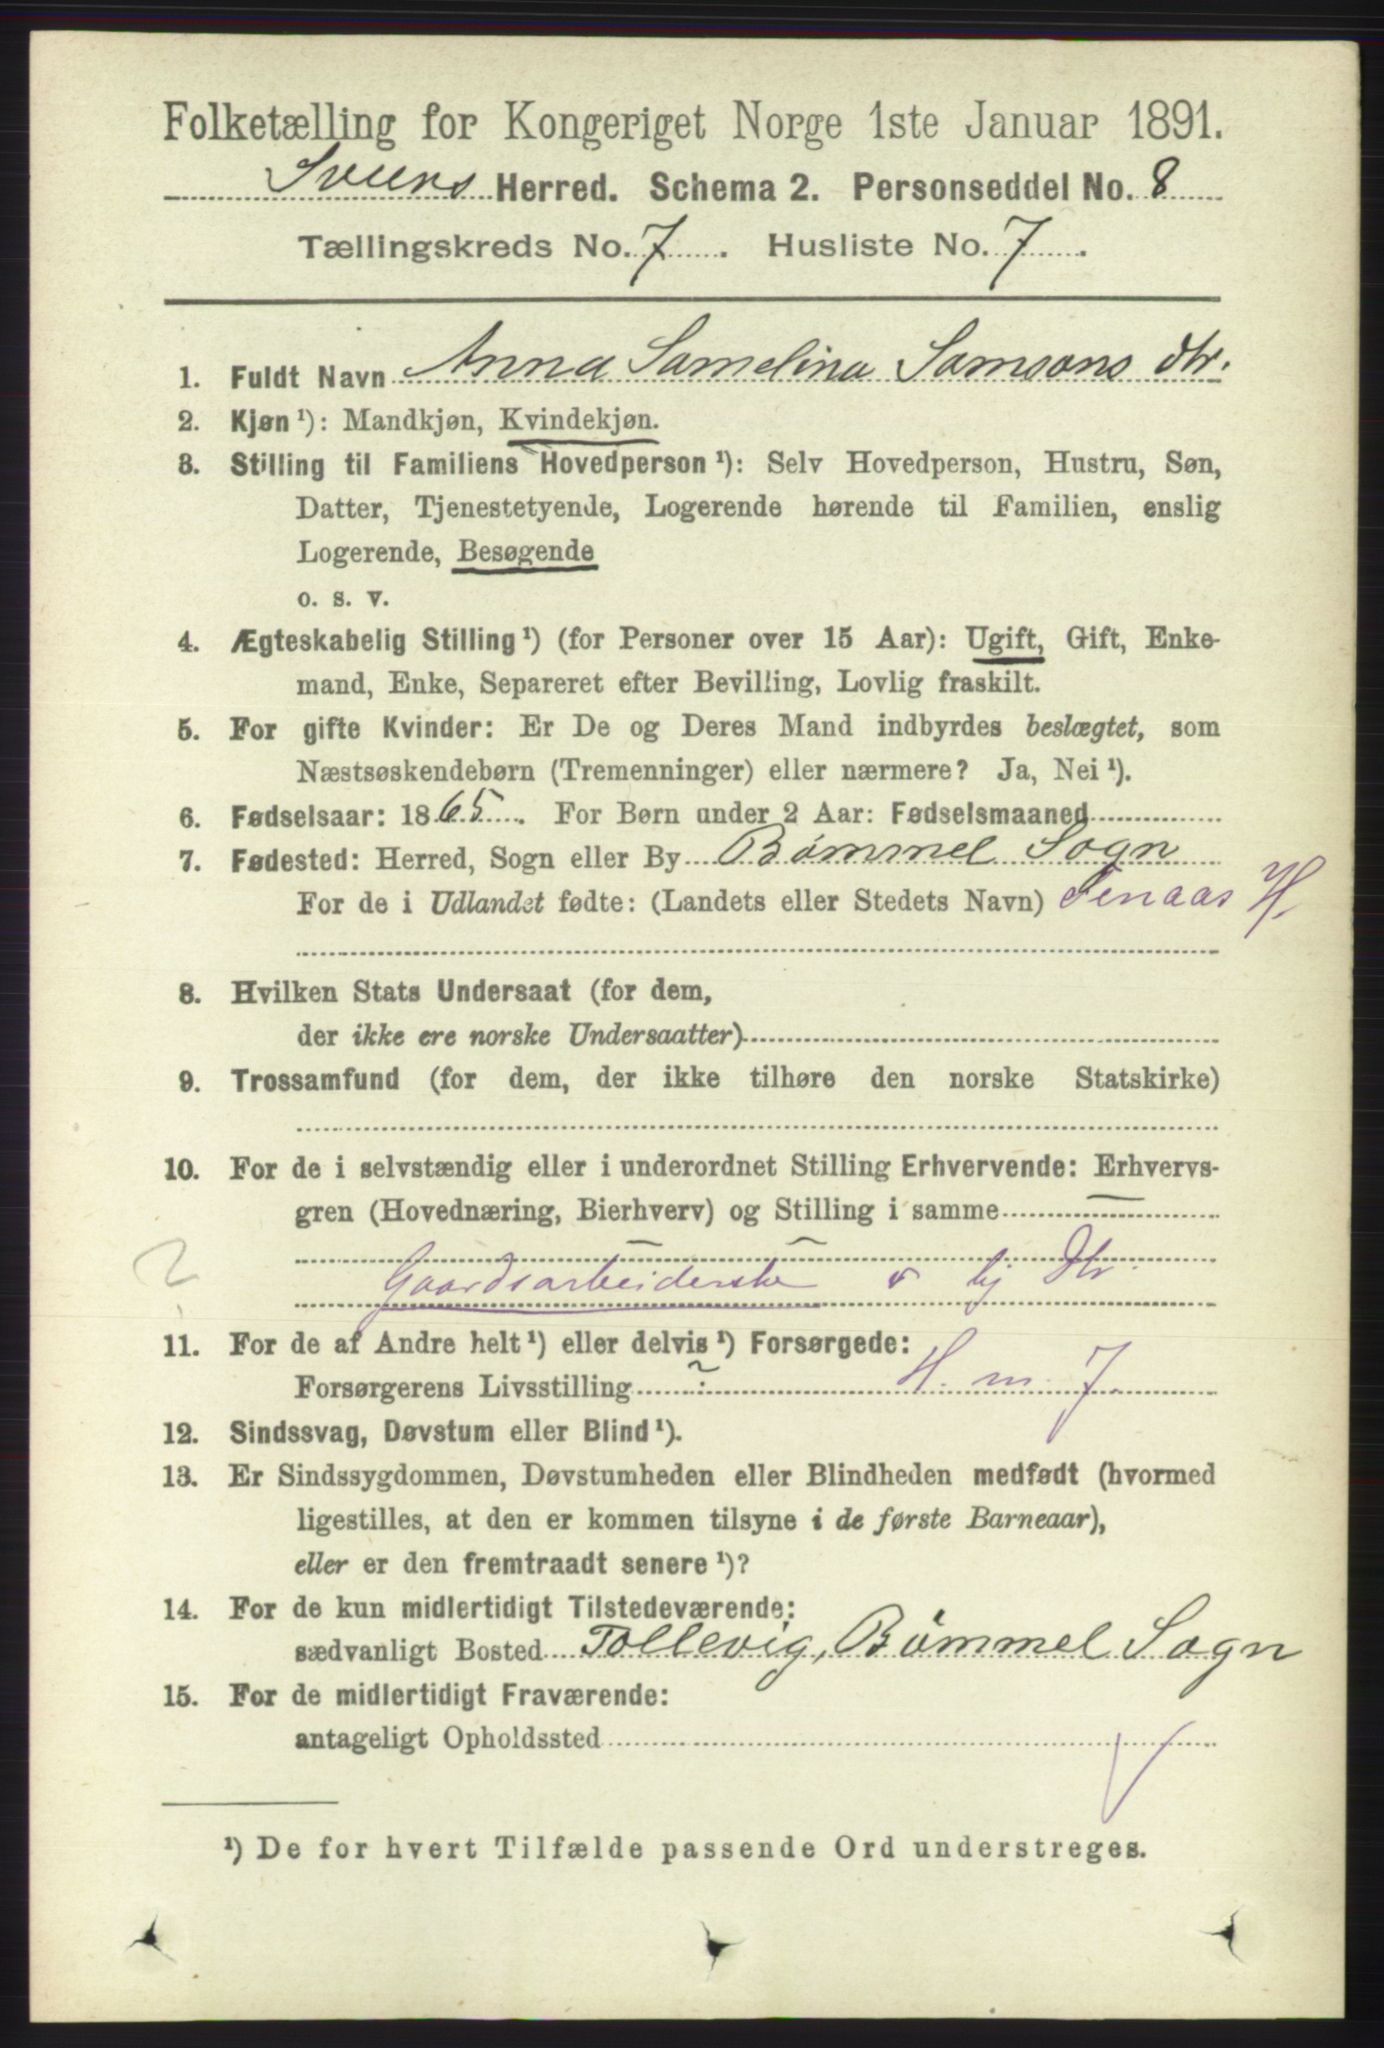 Folketælling for Kongeriget Norge 1ste Januar 1891.
Sveens Herred. Schema 2. Personseddel No. 8
Tællingskreds No. 7. Husliste No. 7.
1. Fuldt Navn Anna Samelina Samsons dtr.
2. Kjøn ¹): Mandkjøn, Kvindekjøn.
3. Stilling til Familiens Hovedperson ¹): Selv Hovedperson, Hustru, Søn,
Datter, Tjenestetyende, Logerende hørende til Familien, enslig
Logerende, Besøgende
o. s. v.
4. Ægteskabelig Stilling ¹) (for Personer over 15 Aar): Ugift, Gift, Enke-
mand, Enke, Separeret efter Bevilling, Lovlig fraskilt.
5. For gifte Kvinder: Er De og Deres Mand indbyrdes beslægtet, som
Næstsøskendebørn (Tremenninger) eller nærmere? Ja, Nei ¹).
6. Fødselsaar: 1865. For Børn under 2 Aar: Fødselsmaaned
7. Fødested: Herred, Sogn eller By Bømmel Sogn
For de i Udlandet fødte: (Landets eller Stedets Navn) Fenaas H.
8. Hvilken Stats Undersaat (for dem,
der ikke ere norske Undersaatter)
9. Trossamfund (for dem, der ikke tilhøre den norske Statskirke)
10. For de i selvstændig eller i underordnet Stilling Erhvervende: Erhvervs-
gren (Hovednæring, Bierhverv) og Stilling i samme
? Gaardsarbeiderske v hj Dtr.
11. For de af Andre helt ¹) eller delvis ¹) Forsørgede:
Forsørgerens Livsstilling ? H. m. 7.
12. Sindssvag, Døvstum eller Blind ¹).
13. Er Sindssygdommen, Døvstumheden eller Blindheden medfødt (hvormed
ligestilles, at den er kommen tilsyne i de første Barneaar),
eller er den fremtraadt senere ¹)?
14. For de kun midlertidigt Tilstedeværende:
sædvanligt Bosted Tollevig, Bømmel Sogn
15. For de midlertidigt Fraværende:
antageligt Opholdssted
¹) De for hvert Tilfælde passende Ord understreges.